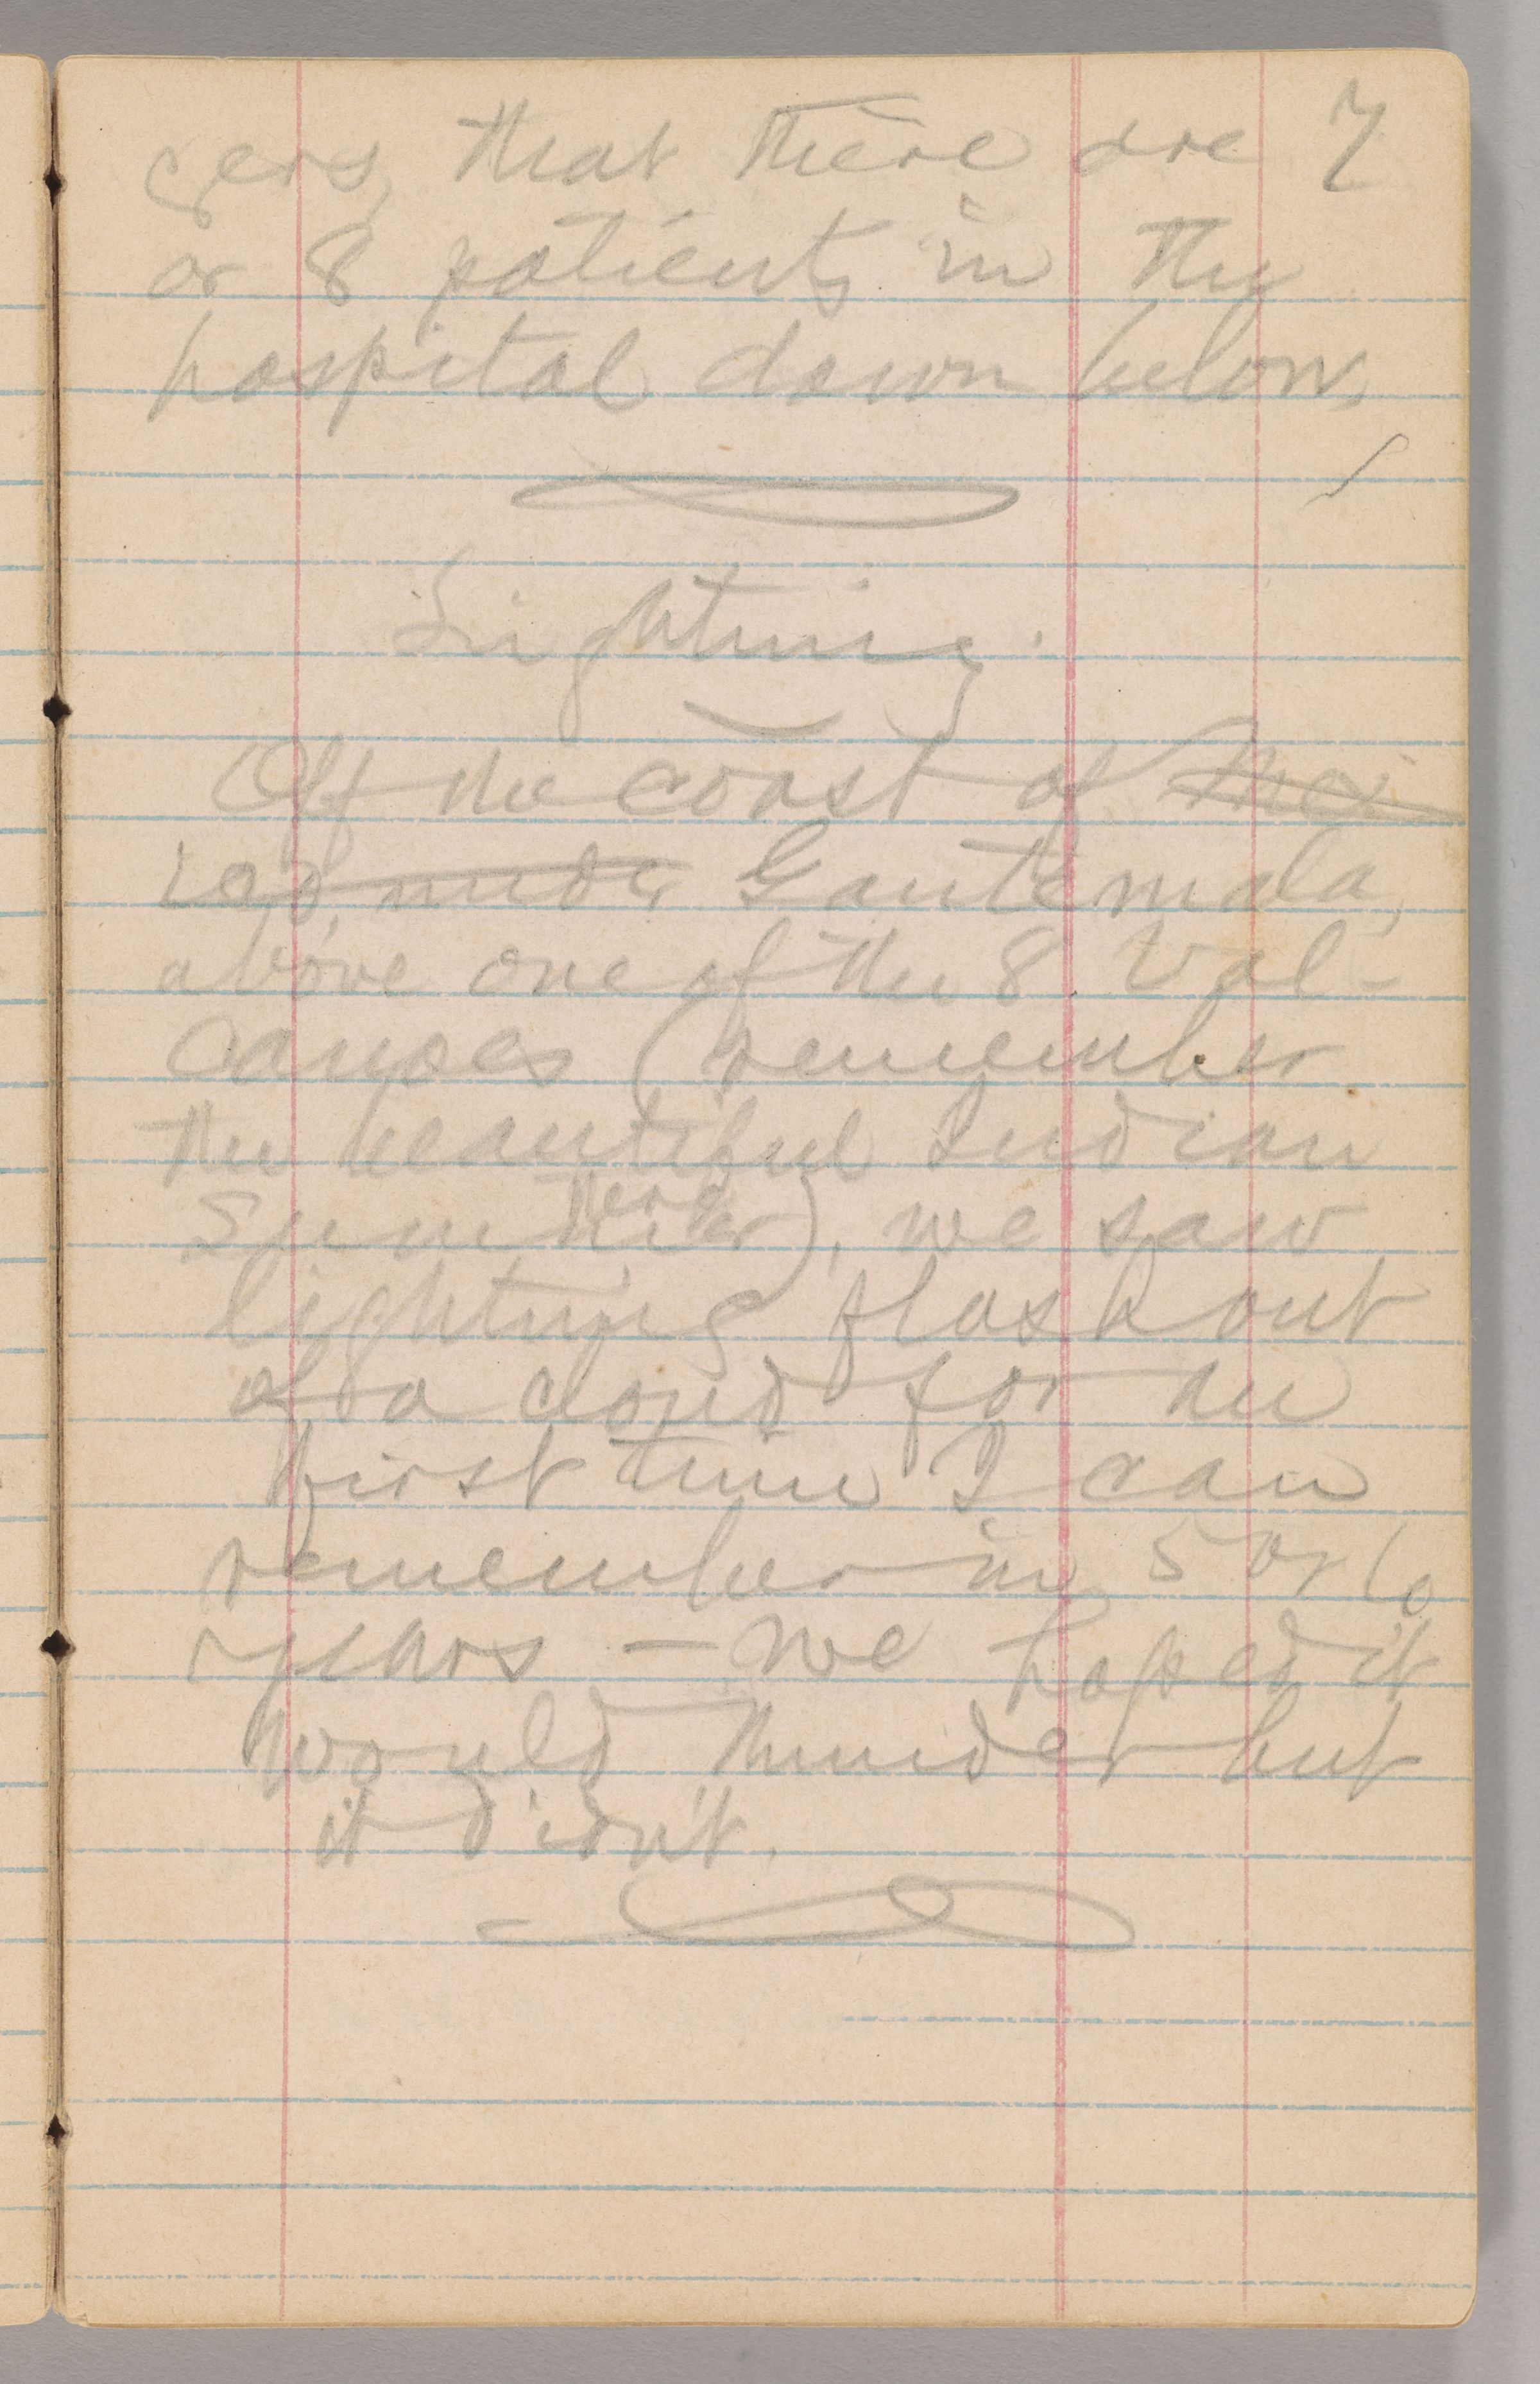 gers, that there are 7
or 8 patients in the
hospital down below.
Lightning.
Off the coast of Mex
ico, under Gautemala,
above one of the 8 Vol-
canoes (remember
the beautiful Indian
Summer there), we saw
lightning flash out
of a cloud for the
first time I can
remember in 5 or 6
years — We hoped it
would thunder but
it didn't.